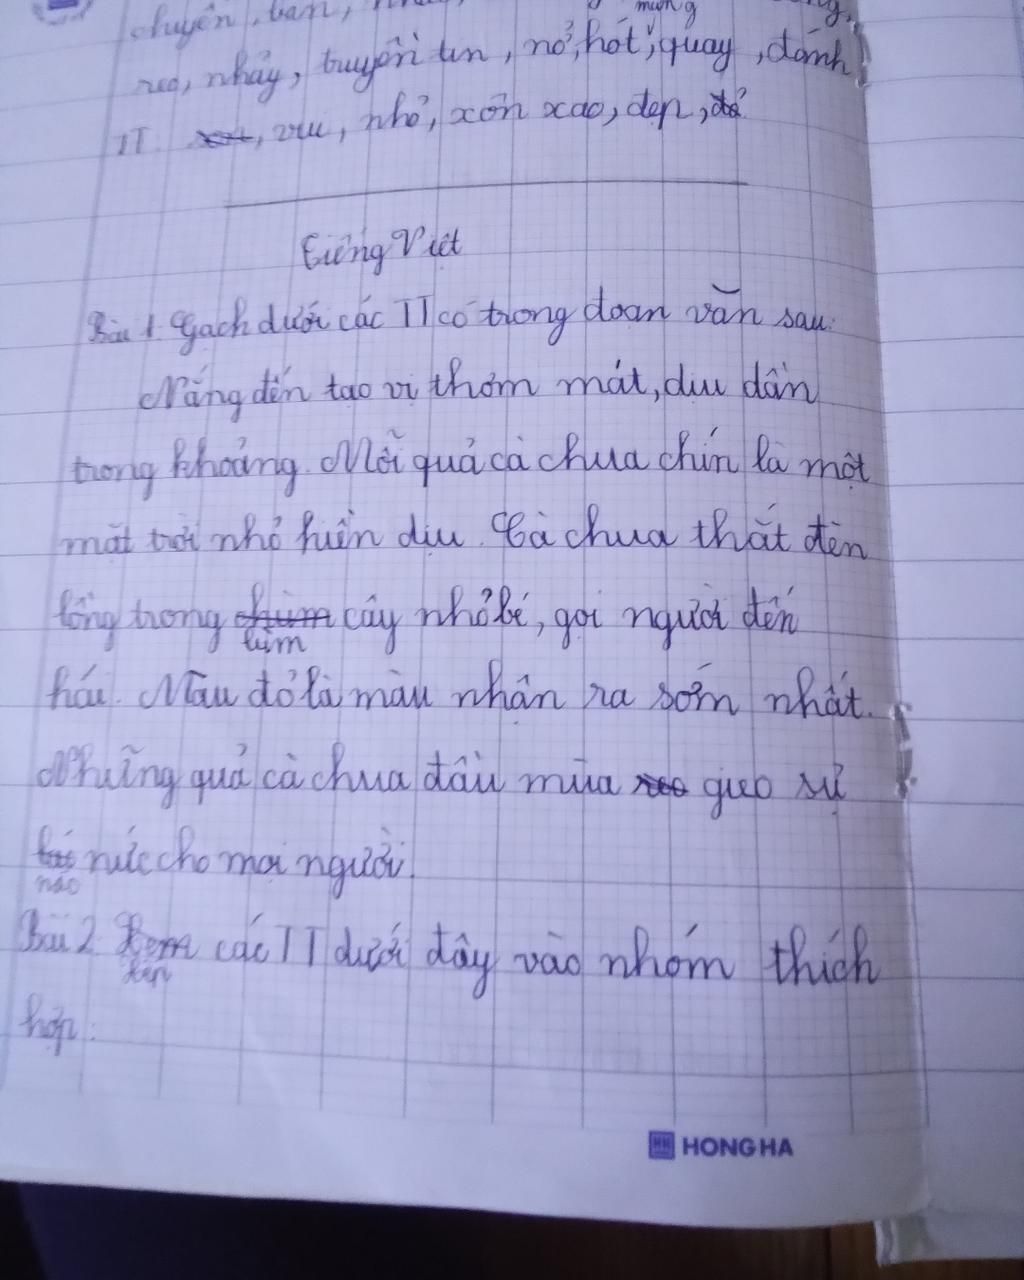 chuyên, ban,
mừng
reo, nhảy, truyền tin, nở, hót, quay, đánh
TT. , vui, nhỏ, xôn xao, đẹp,
Tiếng Việt
Bài 1. Gạch dưới các TT có trong đoạn văn sau:
Nắng đến tạo vị thơm mát, dịu dần
trong khoảng. Mỗi quả cà chua chín là một
mặt trời nhỏ hiền dịu. Cà chua thắt đèn
lồng trong chùm cây nhỏ bé, gọi người đến
lùm
hái. Màu đỏ là màu nhận ra sớm nhất.
Những quả cà chua đầu mùa gieo sự
nức cho mọi người.
náo
Bài 2. Xem các TT dưới đây vào nhóm thích
xếp
hợp:
HONG HA